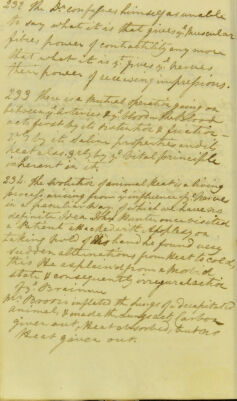 232 The Dr confesses himself as unable
to say what it is that gives ye Muscular
fibres power of contractility any more
than what it is yt gives ye Nerves
their power of receiving impressions.
233 There is a Mutual operation going on
between ye Arteries & ye blood. The blood
acts first by its &
2dly by its Saline properties and it
heat also, & 3dly by ye Vital principle
inherent in it.
234 The evolution of animal Heat is a living
process, arising from ye influence of ye Nerves
in a particular way, of which we have no
definite Idea. Dr Hunter, once visited
a Patient Affected with Apoplexy, on
taking hold of his hand he found very
sudden alternations from Heat to cold,
this He explained from a Morbid
state & consequently irregular action
of ye Brain
Mr Brodie inflated the lungs of a decapitated
animal, & made the Lungs act, Carbon
given out, Heat absorbed, but no
Heat given out.